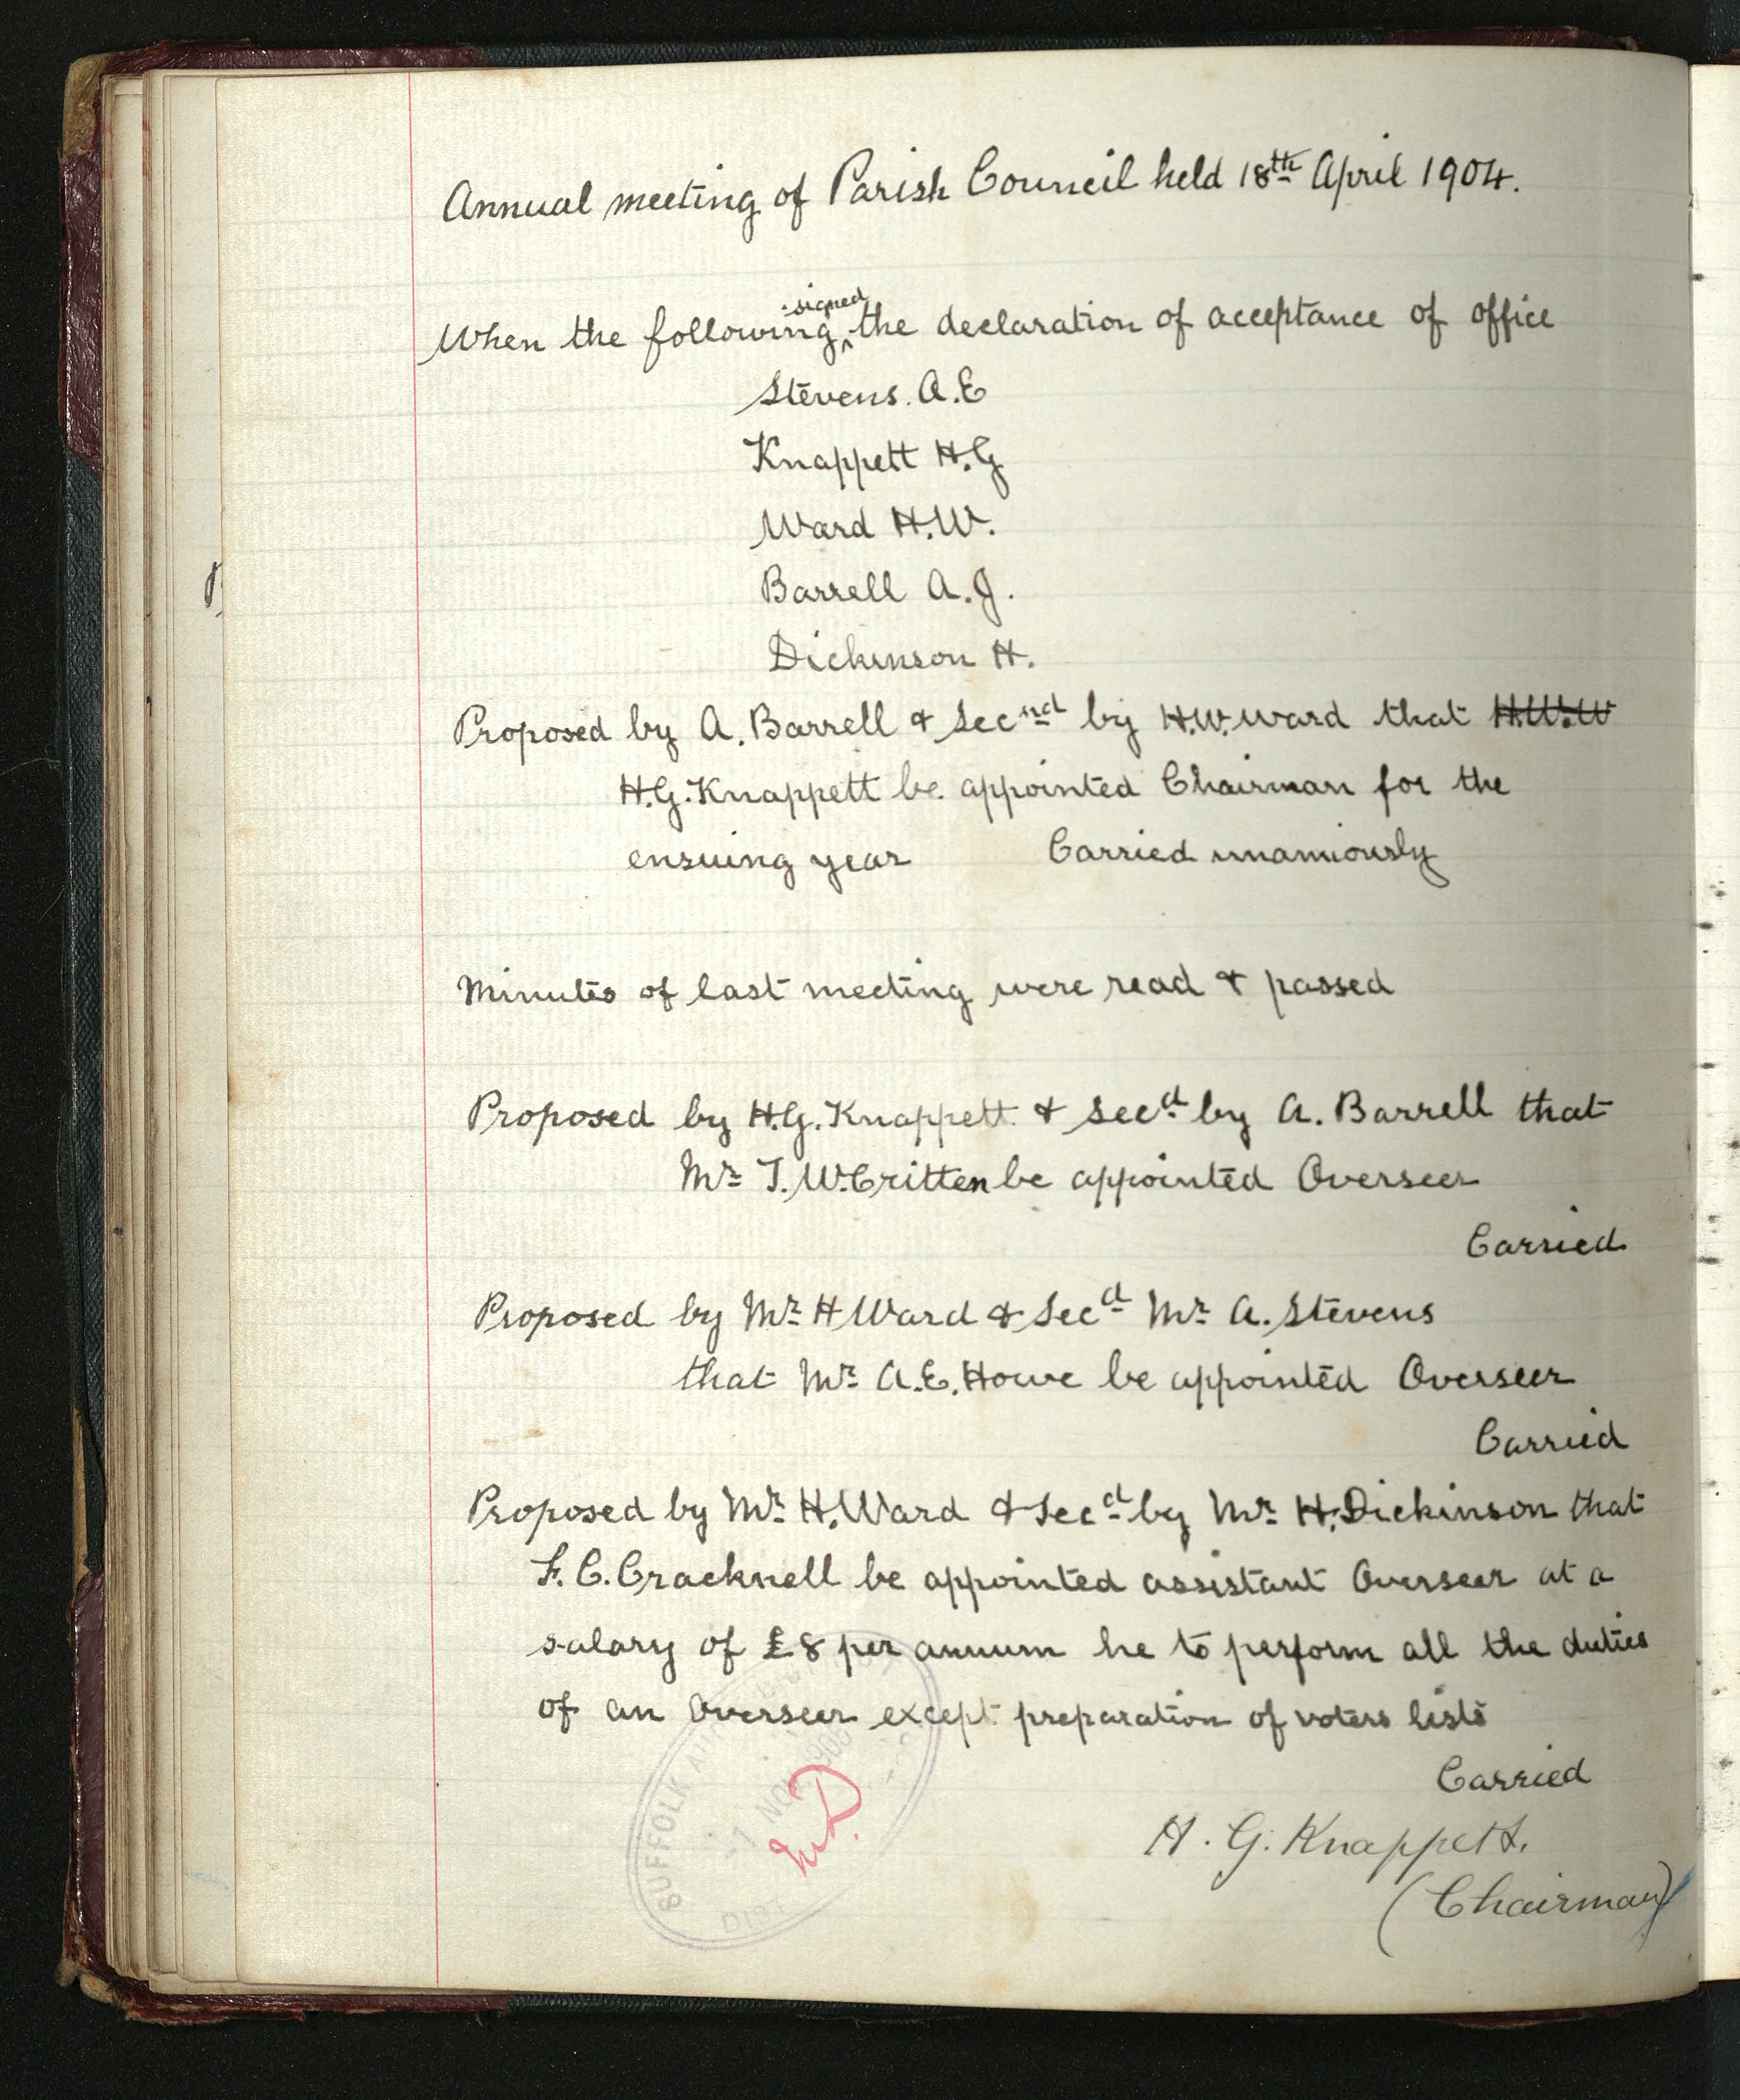 Annual meeting of Parish Council held 18th April 1904.
signed
When the following ^ the declaration of acceptance of office
Stevens. A.E
Knappett H.G
Ward H.W.
Barrell A.J.
Dickinson H.
Proposed by A. Barrell & Secnd by H.W. Ward that H.W.W
H.G. Knappett be appointed Chairman for the
ensuing year Carried unaniously
Minutes of last meeting were read & passed
Proposed by H.G. Knappett & Secd by A. Barrell that
Mr T. W. Critten be appointed Overseer
Carried
Proposed by Mr H Ward & Secd Mr A. Stevens
that Mr A.E. Howe be appointed Overseer
Carried
Proposed by Mr H. Ward & Secd by Mr H. Dickinson that
F. C. Cracknell be appointed assistant Overseer at a
salary of £8 per annum he to perform all the duties
of an Overseer except preparation of voters lists
Carried
H. G. Knappett.
(Chairman)
SUFFOLK AU
NOV